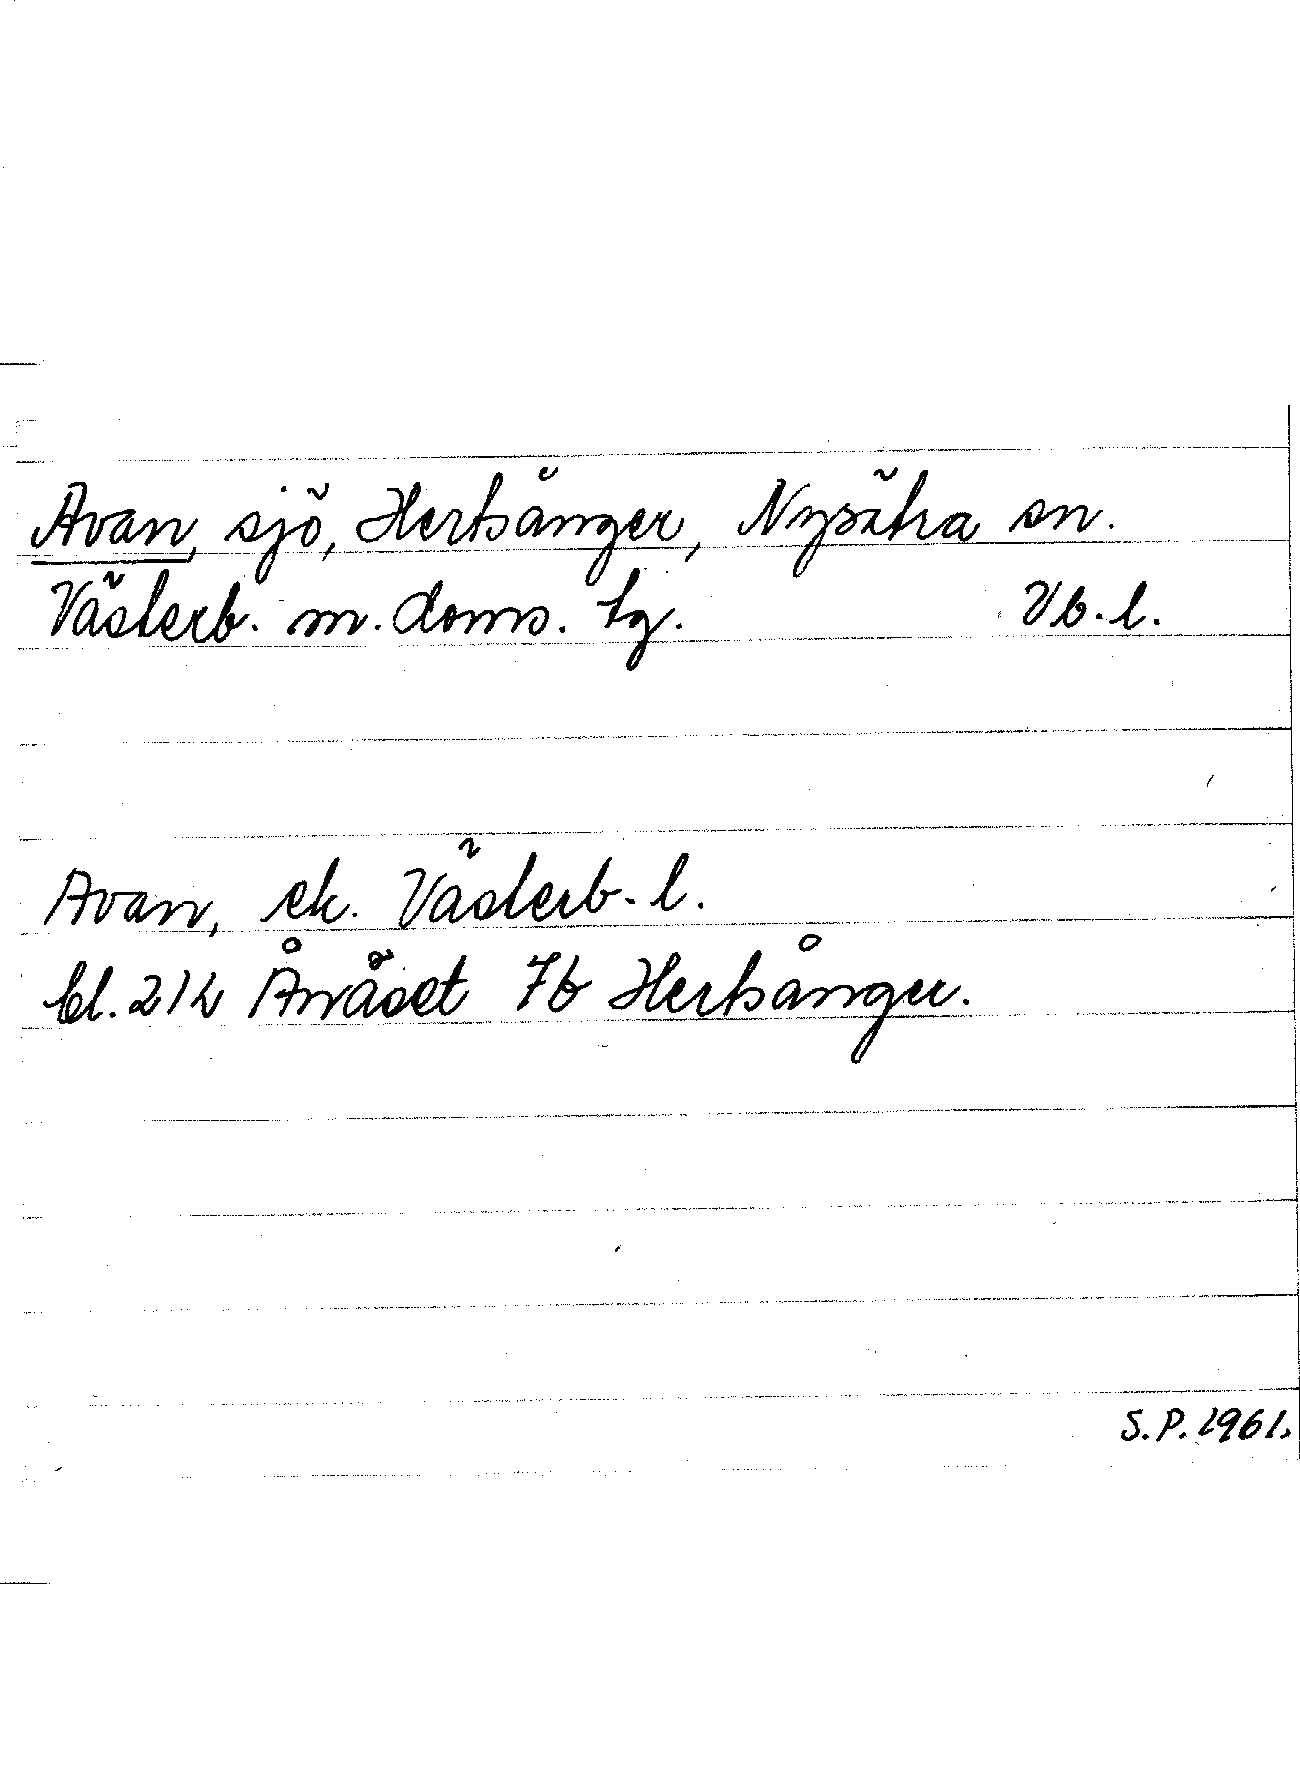 Avan, sjö, Hertsånger, Nysätra sn.
Västerb. m. doms. tg. Vb. l.
Avan, ek. Västerb. l.
bl. 212 Ånäset 7b Hertsånger.
S.P. 1961.